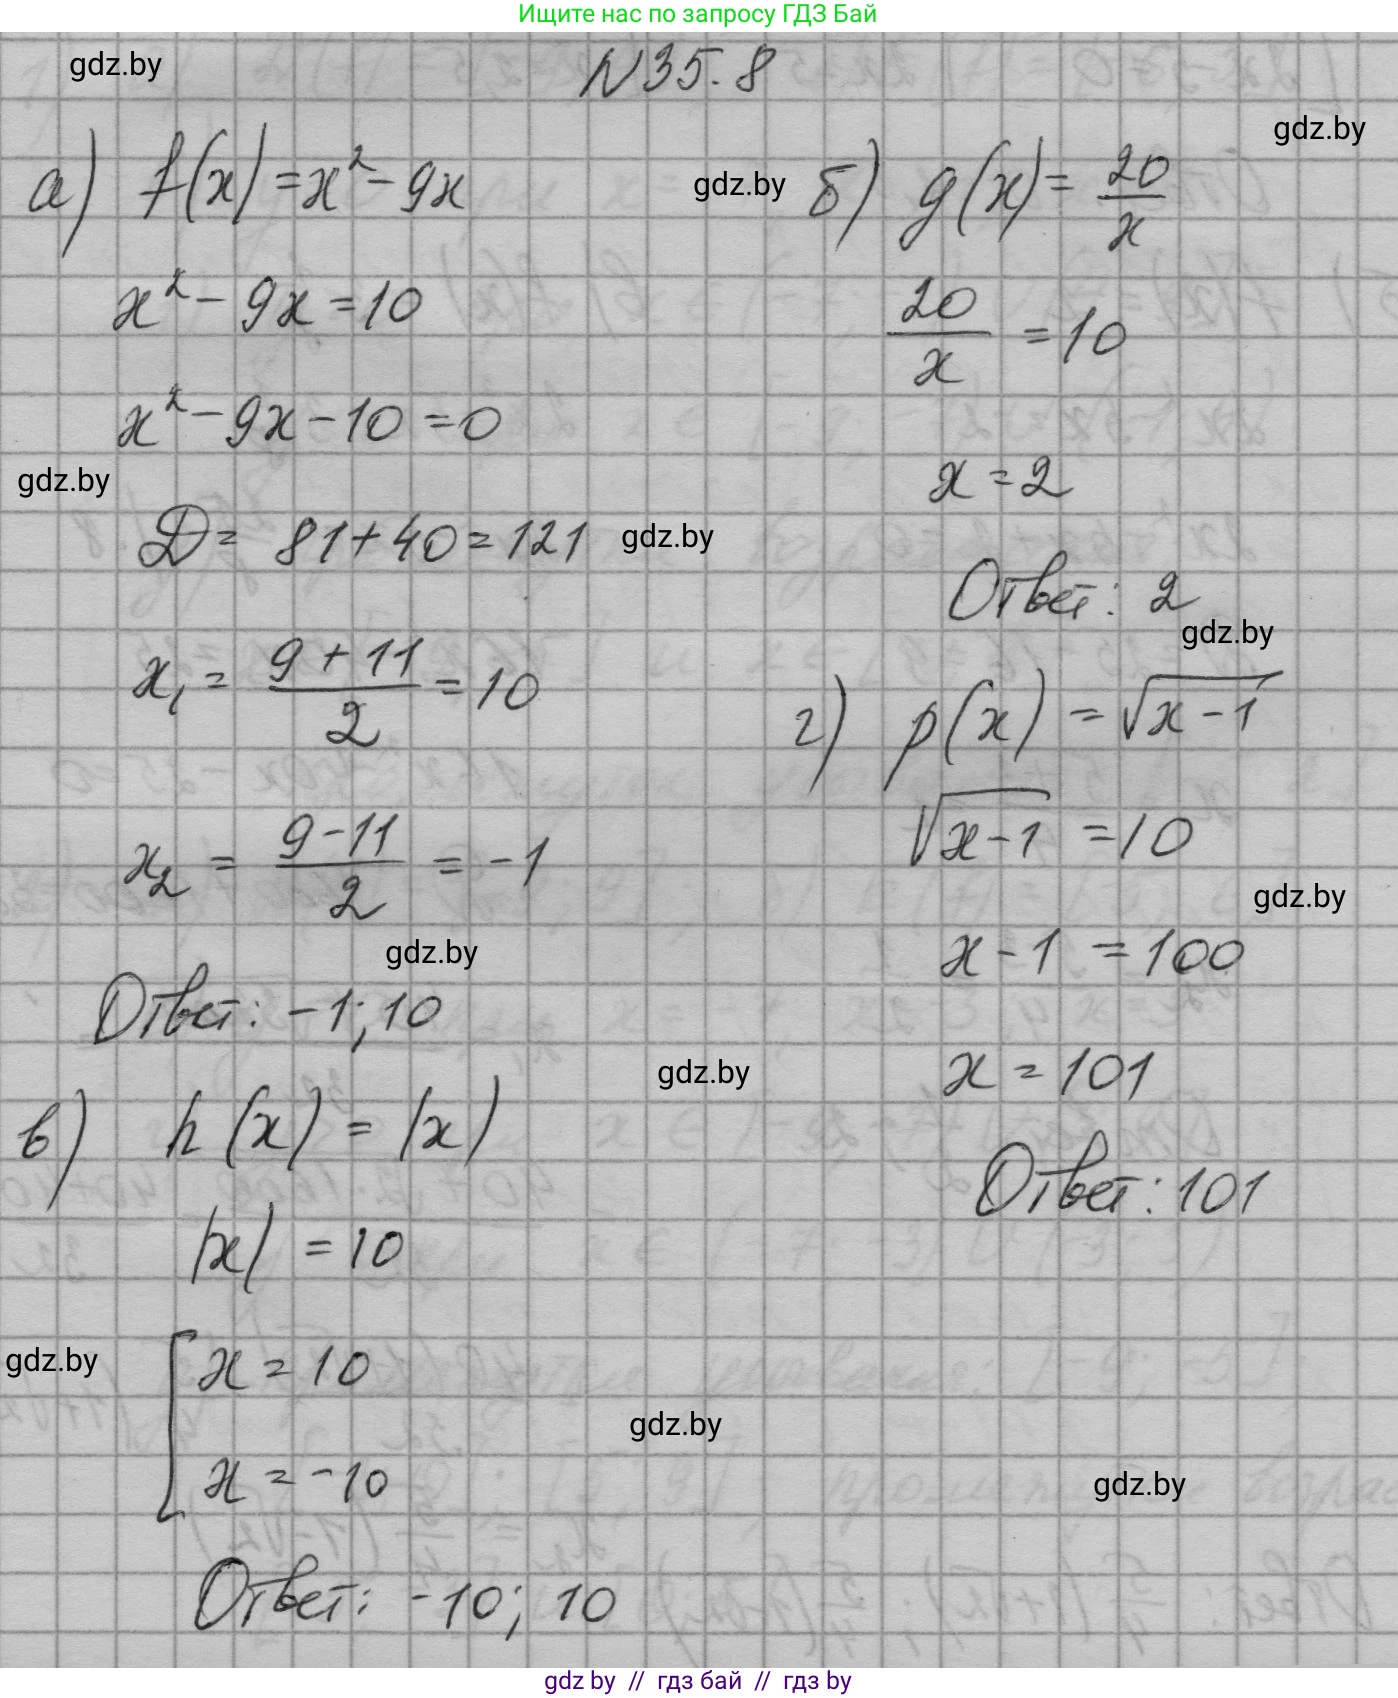 Ищите нас по запросу ГДЗ Бай
gdz.by
N 35.8
gdz.by
а) f(x) = x² - 9x
x² - 9x = 10
x² - 9x - 10 = 0
gdz.by
D = 81 + 40 = 121
gdz.by
x₁ = (9 + 11)/2 = 10
x₂ = (9 - 11)/2 = -1
gdz.by
Ответ: -1; 10
gdz.by
б) g(x) = 20/x
20/x = 10
x = 2
Ответ: 2
gdz.by
в) h(x) = |x|
|x| = 10
[x = 10
x = -10
gdz.by
Ответ: -10; 10
г) p(x) = √(x - 1)
√(x - 1) = 10
gdz.by
x - 1 = 100
x = 101
gdz.by
Ответ: 101
gdz.by
gdz.by
gdz by // гдз бай // гдз by